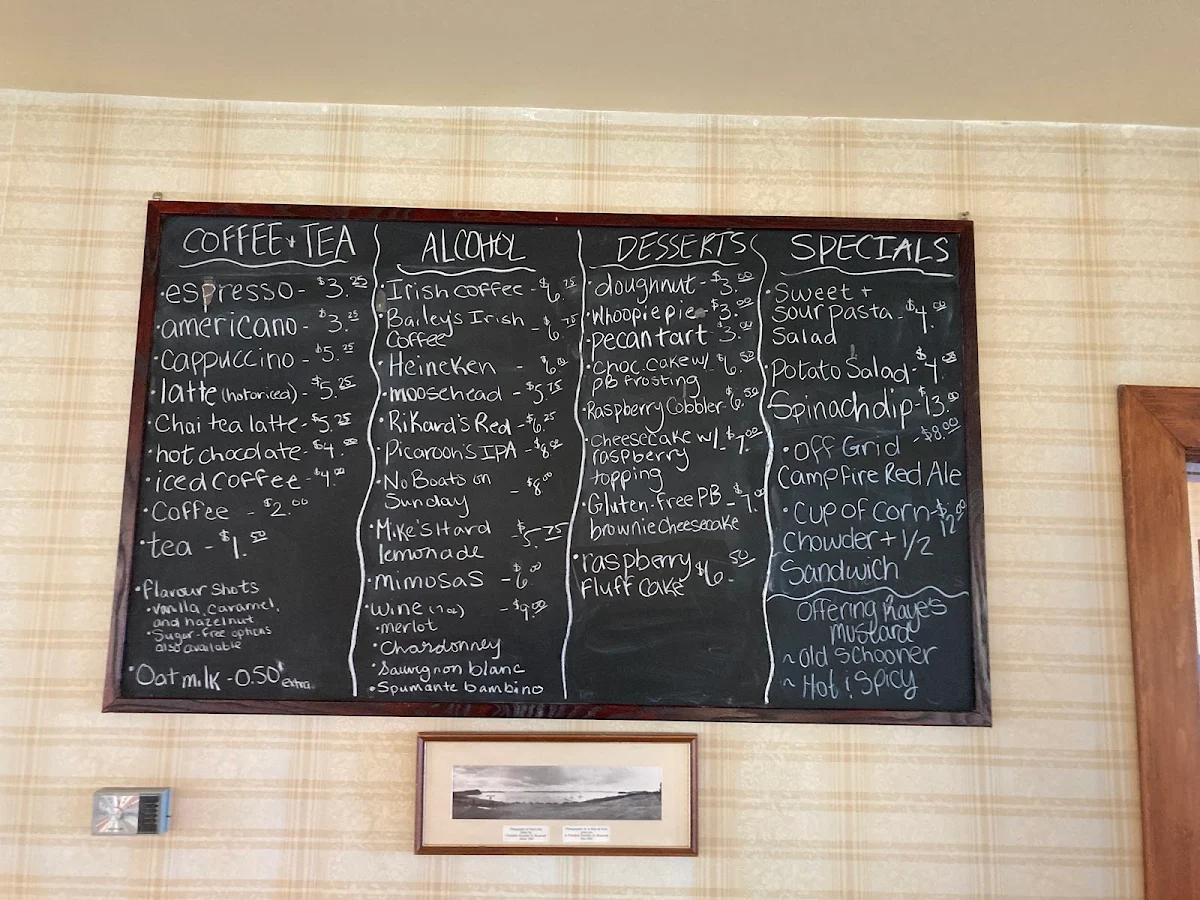 COFFEE + TEA
·espresso - $3.25
·americano - $3.25
·cappuccino - $5.25
·latte (hot or iced) - $5.25
·Chai tea latte - $5.25
·hot chocolate - $4.00
·iced coffee - $4.00
·Coffee - $2.00
·tea - $1.50
·flavour shots
·vanilla, caramel,
and hazelnut
·Sugar-free options
also available
·Oat milk - 0.50 extra
ALCOHOL
·Irish coffee - $6.75
·Bailey's Irish - $6.75
Coffee
·Heineken - $6.00
·moosehead - $5.75
·Rikard's Red - $6.25
·Picaroon's IPA - $8.00
·No Boats on - $8.00
Sunday
·Mike's Hard - $5.75
lemonade
·mimosas - $6.00
·wine (7oz) - $9.00
·merlot
·Chardonney
·Sauvignon blanc
·Spumante bambino
DESSERTS
·doughnut - $3.00
·Whoopie pie - $3.00
·pecan tart $3.00
·choc. cake w/ $6.50
PB frosting
·Raspberry Cobbler - $6.50
·cheesecake w/ - $7.00
raspberry
topping
·Gluten-free PB - $7.00
brownie cheesecake
·raspberry $6.50
Fluff Cake
SPECIALS
·Sweet +
sour pasta - $4.00
Salad
·Potato Salad - $4.
·Spinach dip - $13.00
·Off Grid - $8.00
Campfire Red Ale
·Cup of corn - $12.00
chowder + 1/2
Sandwich
Offering Raye's
mustard
~ Old Schooner
~ Hot & Spicy